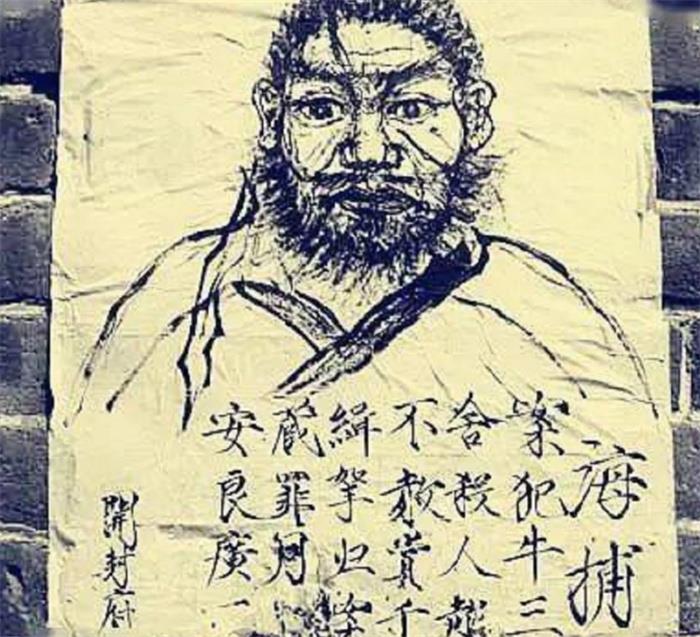 海捕
案犯牛二
舍殺人越
不赦賞千
緝拏归案
藏罪同
安良廣
開封府